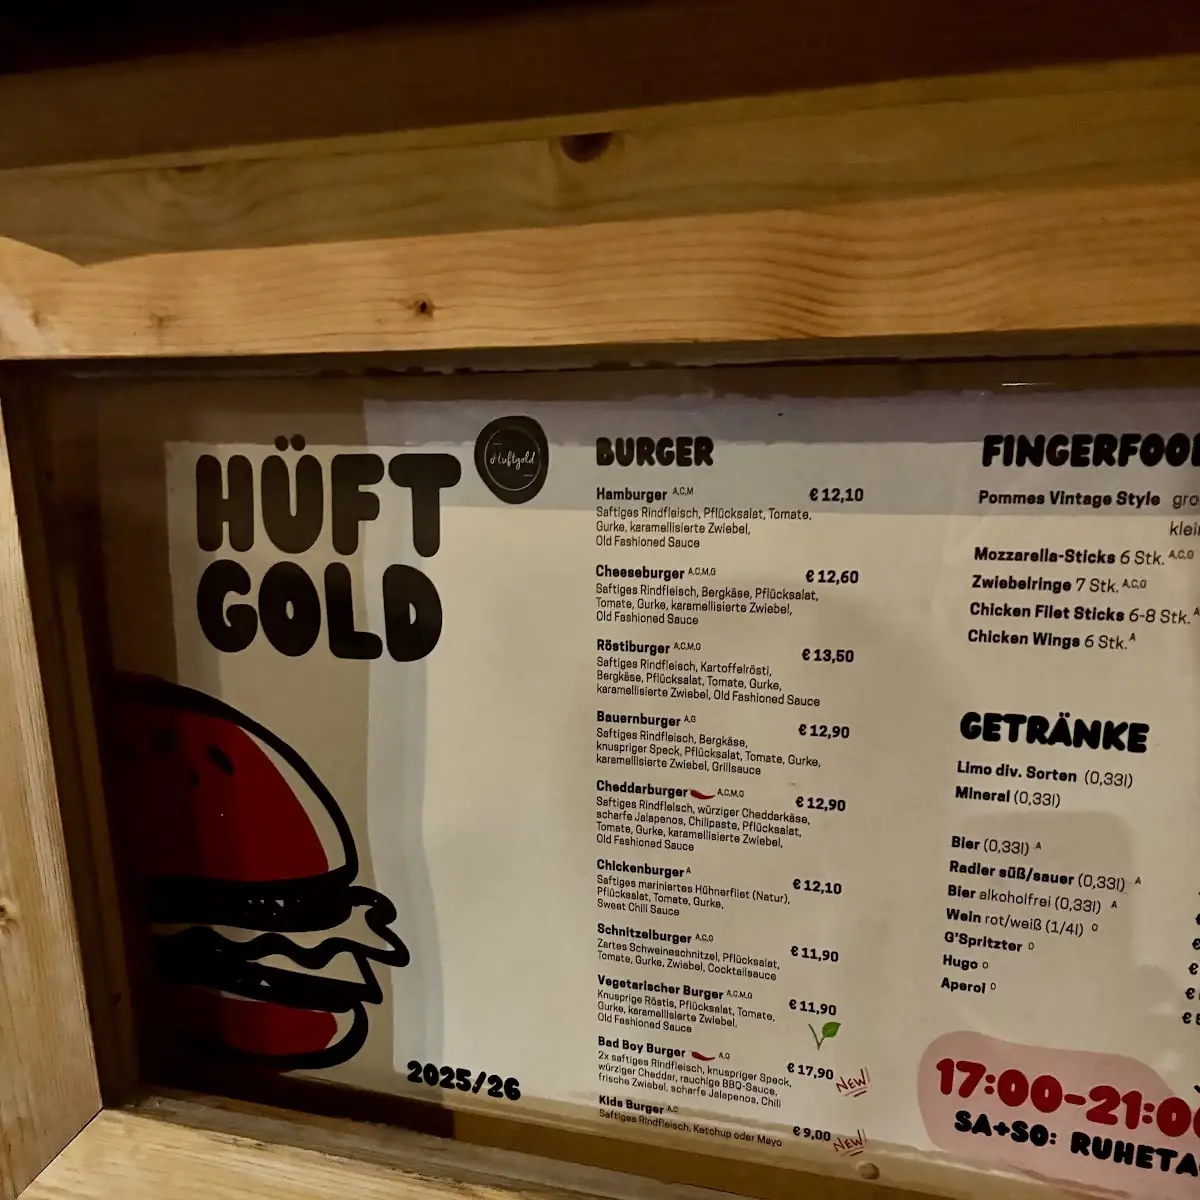 HÜFT
GOLD
Hüftgold
2025/26
BURGER
Hamburger A,C,M € 12,10
Saftiges Rindfleisch, Pflücksalat, Tomate,
Gurke, karamellisierte Zwiebel,
Old Fashioned Sauce
Cheeseburger A,C,M,G € 12,60
Saftiges Rindfleisch, Bergkäse, Pflücksalat,
Tomate, Gurke, karamellisierte Zwiebel,
Old Fashioned Sauce
Röstiburger A,C,M,G € 13,50
Saftiges Rindfleisch, Kartoffelrösti,
Bergkäse, Pflücksalat, Tomate, Gurke,
karamellisierte Zwiebel, Old Fashioned Sauce
Bauernburger A,G € 12,90
Saftiges Rindfleisch, Bergkäse,
knuspriger Speck, Pflücksalat, Tomate, Gurke,
karamellisierte Zwiebel, Grillsauce
Cheddarburger A,C,M,G € 12,90
Saftiges Rindfleisch, würziger Cheddarkäse,
scharfe Jalapenos, Chilipaste, Pflücksalat,
Tomate, Gurke, karamellisierte Zwiebel,
Old Fashioned Sauce
Chickenburger A € 12,10
Saftiges mariniertes Hühnerfilet (Natur),
Pflücksalat, Tomate, Gurke,
Sweet Chili Sauce
Schnitzelburger A,C,G € 11,90
Zartes Schweineschnitzel, Pflücksalat,
Tomate, Gurke, Zwiebel, Cocktailsauce
Vegetarischer Burger A,C,M,G € 11,90
Knusprige Röstis, Pflücksalat, Tomate,
Gurke, karamellisierte Zwiebel,
Old Fashioned Sauce
Bad Boy Burger A,G € 17,90 NEW!
2x saftiges Rindfleisch, knuspriger Speck,
würziger Cheddar, rauchige BBQ-Sauce,
frische Zwiebel, scharfe Jalapenos, Chili
Kids Burger A,C € 9,00 NEW!
Saftiges Rindfleisch, Ketchup oder Mayo
FINGERFOO
Pommes Vintage Style gro
klei
Mozzarella-Sticks 6 Stk. A,C,G
Zwiebelringe 7 Stk. A,C,G
Chicken Filet Sticks 6-8 Stk. A
Chicken Wings 6 Stk. A
GETRÄNKE
Limo div. Sorten (0,33l)
Mineral (0,33l)
Bier (0,33l) A
Radler süß/sauer (0,33l) A
Bier alkoholfrei (0,33l) A
Wein rot/weiß (1/4l) O
G'Spritzter O
Hugo O
Aperol O
17:00-21:0
SA+SO: RUHETA